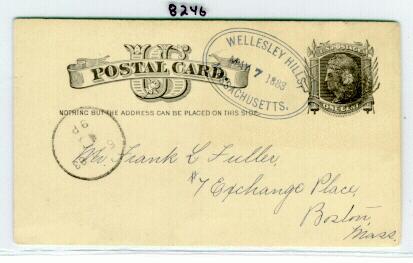 8246
WELLESLEY HILLS
MAY 7 1883
MASSACHUSETTS.
U.S. POSTAGE
US
POSTAL CARD.
ONE CENT
NOTHING BUT THE ADDRESS CAN BE PLACED ON THIS SIDE.
Mr. Frank L Fuller,
#7 Exchange Place,
Boston,
Mass.